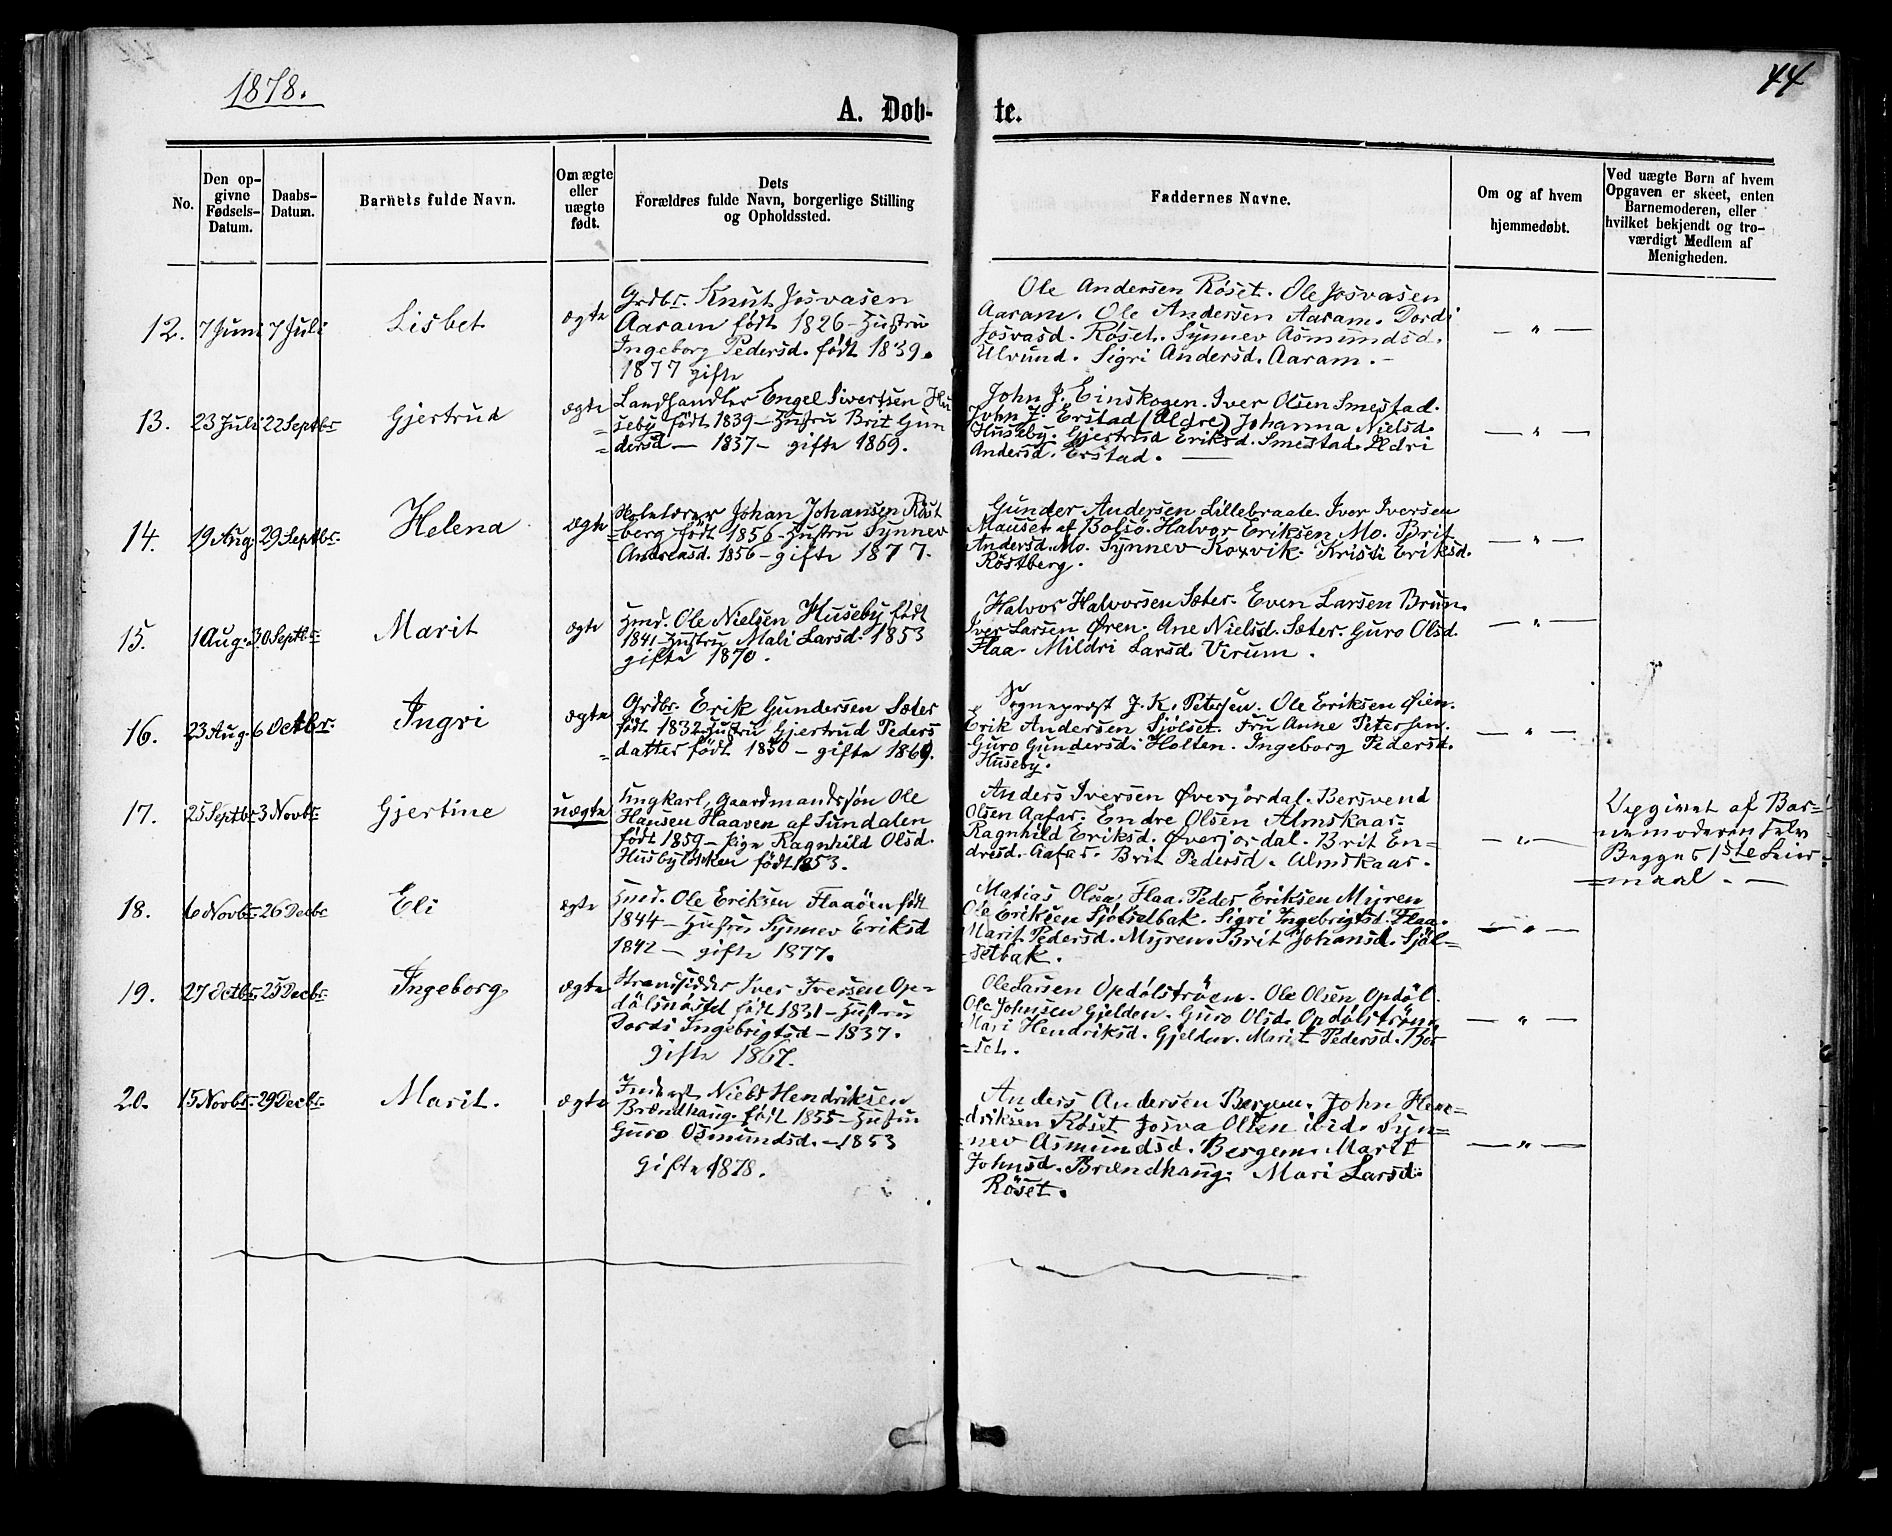 1878.
44
A. Döb-
te.
No.
Den op-
givne
Fødsels-
Datum.
Daabs-
Datum.
Barnets fulde Navn.
Om ægte
eller
uægte
født.
Dets
Forældres fulde Navn, borgerlige Stilling
og Opholdssted.
Faddernes Navne.
Om og af hvem
hjemmedøbt.
Ved uægte Børn af hvem
Opgaven er skeet, enten
Barnemoderen, eller
hvilket bekjendt og tro-
værdigt Medlem af
Menigheden.
12. 7 Juni 7 Juli Lisbet ægte
Grdbr. Knut Josvasen
Aaram født 1826 - Hustru
Ingeborg Pedersd. født 1839.
1877 gifte
Ole Andersen Röset. Ole Josvasen
Aaram. Ole Andersen Aaram. Dordi
Josvasd. Röset. Synnev Asmundsd.
Ulvund. Sigri Andersd. Aaram. -
— " —
13. 23 Juli 22 Septbr Gjertrud ægte
Landhandler Engel Sivertsen Hu
seby født 1839 - Hustru Brit Gun
dersd - 1837 - gifte 1869.
John J. Einskogen. Iver Olsen Smestad.
John J. Erstad (Ældre) Johanna Nielsd.
Huseby. Gjertrud Eriksd. Smestad. Ildri
Andersd. Erstad. —
— " —
14. 19 Aug. 29 Septbr. Helena ægte
Skolelærer Johan Johansen Röst
berg født 1856 - Hustru Synnev
Andreasd. 1856 - gifte 1877.
Gunder Andersen Lillebraate. Iver Iversen
Mauset af Bolsö. Halvor Eriksen Mo. Brit
Andersd. Mo. Synnev Koxvik. Kristi Eriksd.
Röstberg.
— " —
15. 1 Aug. 30 Septbr Marit ægte
Hmd. Ole Nielsen Huseby født
1841 - Hustru Mali Larsd. 1853
gifte 1870.
Halvor Halvorsen Sæter. Even Larsen Brun.
Iver Larsen Øren. Ane Nielsd. Sæter. Guro Olsd.
Flaa. Mildri Larsd. Virum.
— " —
16. 23 Aug. 6 Octbr. Ingri ægte
Grdbr. Erik Gundersen Sæter
født 1832 Hustru Gjertrud Peders
datter født 1850 - gifte 1869.
Sognepræst J. K. Petersen. Ole Eriksen Øien.
Erik Andersen Sjölset. Fru Anne Petersen.
Guro Gundersd. Holten. Ingeborg Pedersd.
Huseby.
— " —
17. 25 Septbr 3 Novbr. Gjertine uægte
Ungkarl, Gaardmandssön Ole
Hansen Haaven af Sundalen
født 1859 - Pige Ragnhild Olsd.
Husbyløkken født 1853.
Anders Iversen Øverjordal. Bersvend
Olsen Aafar. Endre Olsen Almskaar.
Ragnhild Eriksd. Øverjordal. Brit En-
dresd. Aafar. Brit Pedersd. Almskaar.
— " —
Opgivet af Bar-
nemoderen selv
Begges 1ste Leier-
maal. —
18. 6 Novbr. 26 Decbr Eli ægte
Hmd. Ole Eriksen Flaaöien født
1844 - Hustru Synnev Eriksd
1842 - gifte 1877.
Matias Olsen Flaa. Peder Eriksen Myren
Ole Eriksen Sjölsetbak. Sigri Ingebrigtsd. Flaa.
Marit Pedersd. Myren. Brit Johansd. Sjöl-
setbak.
— " —
19. 27 Octbr. 25 Decbr. Ingeborg ægte
Strandsidder Iver Iversen Op-
dölsnöstet født 1831 - Hustru
Dordi Ingebrigtsd - 1837.
gifte 1867.
Ole Larsen Opdölströen. Ole Olsen Opdöl.
Ole Johnsen Gjelden. Guro Olsd. Opdölströen.
Mari Hendriksd. Gjelden. Marit Pedersd. Bör
set.
— " —
20. 15 Novbr. 29 Decbr. Marit. ægte
Inderst Niels Hendriksen
Brændhaug født 1855 - Hustru
Guro Osmundsd. - 1853
gifte 1878.
Anders Andersen Bergem. John Hen-
driksen Röset Josva Olsen ibid. Syn-
nev Asmundsd. Bergem. Marit
Johnsd. Brændhaug. Mari Larsd.
Röset.
— " —